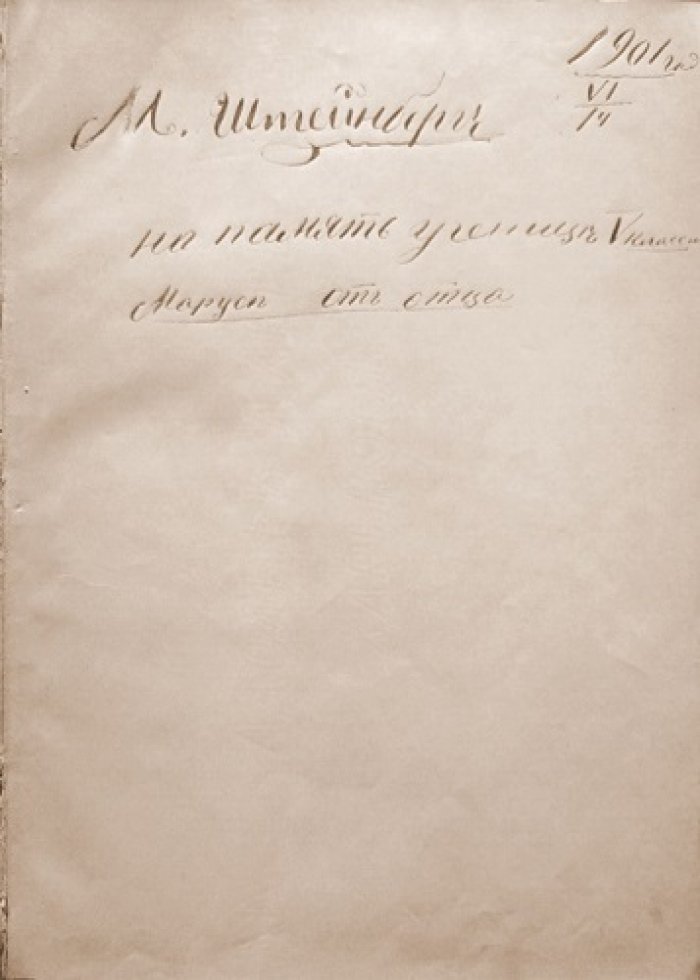 1901 год
VI
14
М. Штейнберг
на память ученицѣ V класса
Маруси отъ отца